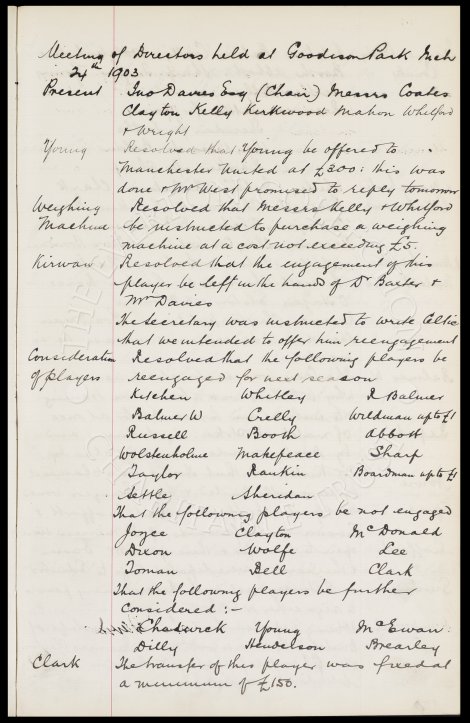 Meeting of Directors held at Goodison Park Mch
24th 1903
Present Jno Davies Esq (Chair) Messrs Coates
Clayton Kelly Kirkwood Mahon Whitford
& Wright
Young Resolved that Young be offered to
Manchester United at £300: this was
done & Mr West promised to reply tomorrow
Weighing Resolved that Messrs Kelly & Whitford
Machine be instructed to purchase a weighing
machine at a cost not exceeding £5.
Kirwan Resolved that the engagement of this
player be left in the hands of Dr Baxter &
Mr Davies
The Secretary was instructed to write Celtic
that we intended to offer him reengagement
Consideration Resolved that the following players be
of players reengaged for next season
Kitchen Whitley R Balmer
Balmer W Crelly Wildman up to £1
Russell Booth Abbott
Wolstenholme Makepeace Sharp
Taylor Rankin Boardman up to £1
Settle Sheridan
That the following players be not engaged
Joyce Clayton McDonald
Dixon Wolfe Lee
Toman Bell Clark
That the following players be further
considered :-
Chadwick Young McEwan
Dilly Henderson Brearley
Clark The transfer of this player was fixed at
a minimum of £150.